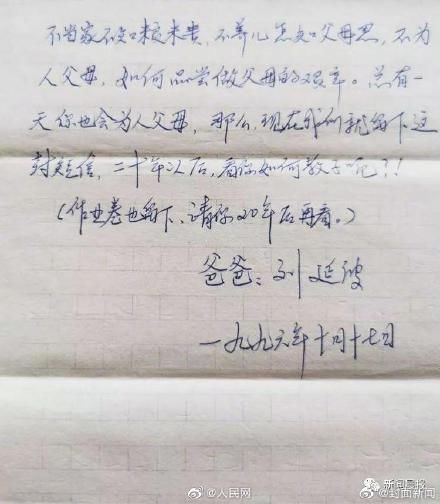 不当家不知柴米贵，不养儿怎知父母恩，不为
人父母，如何品尝做父母的艰辛。总有一
天你也会为人父母，那么，现在我们就留下这
封短信，二十年以后，看你如何教子呢？！
（作业卷也留下、请你20年后再看。）
爸爸：刘延波
一九九六年十月十七日
@人民网
@封面新闻
新闻晨报